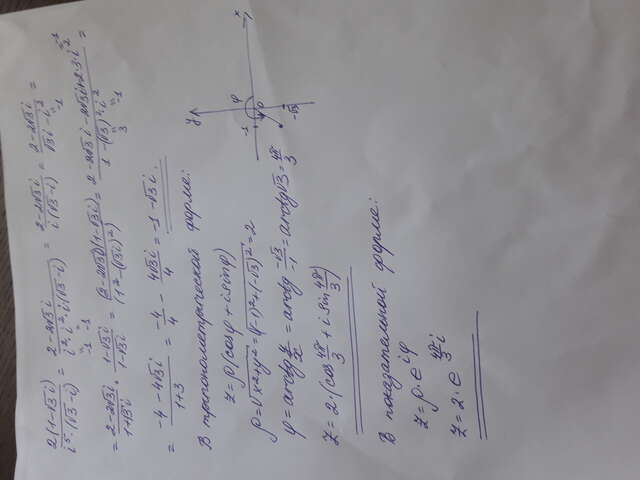 2(1-√3i)/(i⁵·(√3-i)) = (2-2√3i)/(i²·i²·i(√3-i)) = (2-2√3i)/(i(√3-i)) = (2-2√3i)/(√3i-i²) =
-1 -1 -1
= (2-2√3i)/(1+√3i) · (1-√3i)/(1-√3i) = (2-2√3i)(1-√3i)/(1²-(√3i)²) = (2-2√3i-2√3i+2·3·i²)/(1-(√3)²·i²) =
-1 3 -1
= (-4-4√3i)/(1+3) = -4/4 - 4√3i/4 = -1-√3i.
В тригонометрической форме:
z=ρ(cosφ+isinφ)
ρ=√(x²+y²)=√((-1)²+(-√3)²)=2
φ=arctg y/x = arctg -√3/-1 = arctg√3 = 4π/3
z=2·(cos 4π/3 + i sin 4π/3)
y
x
-1
φ
0
-√3
В показательной форме:
z=ρ·e^(iφ)
z=2·e^(4π/3 i)